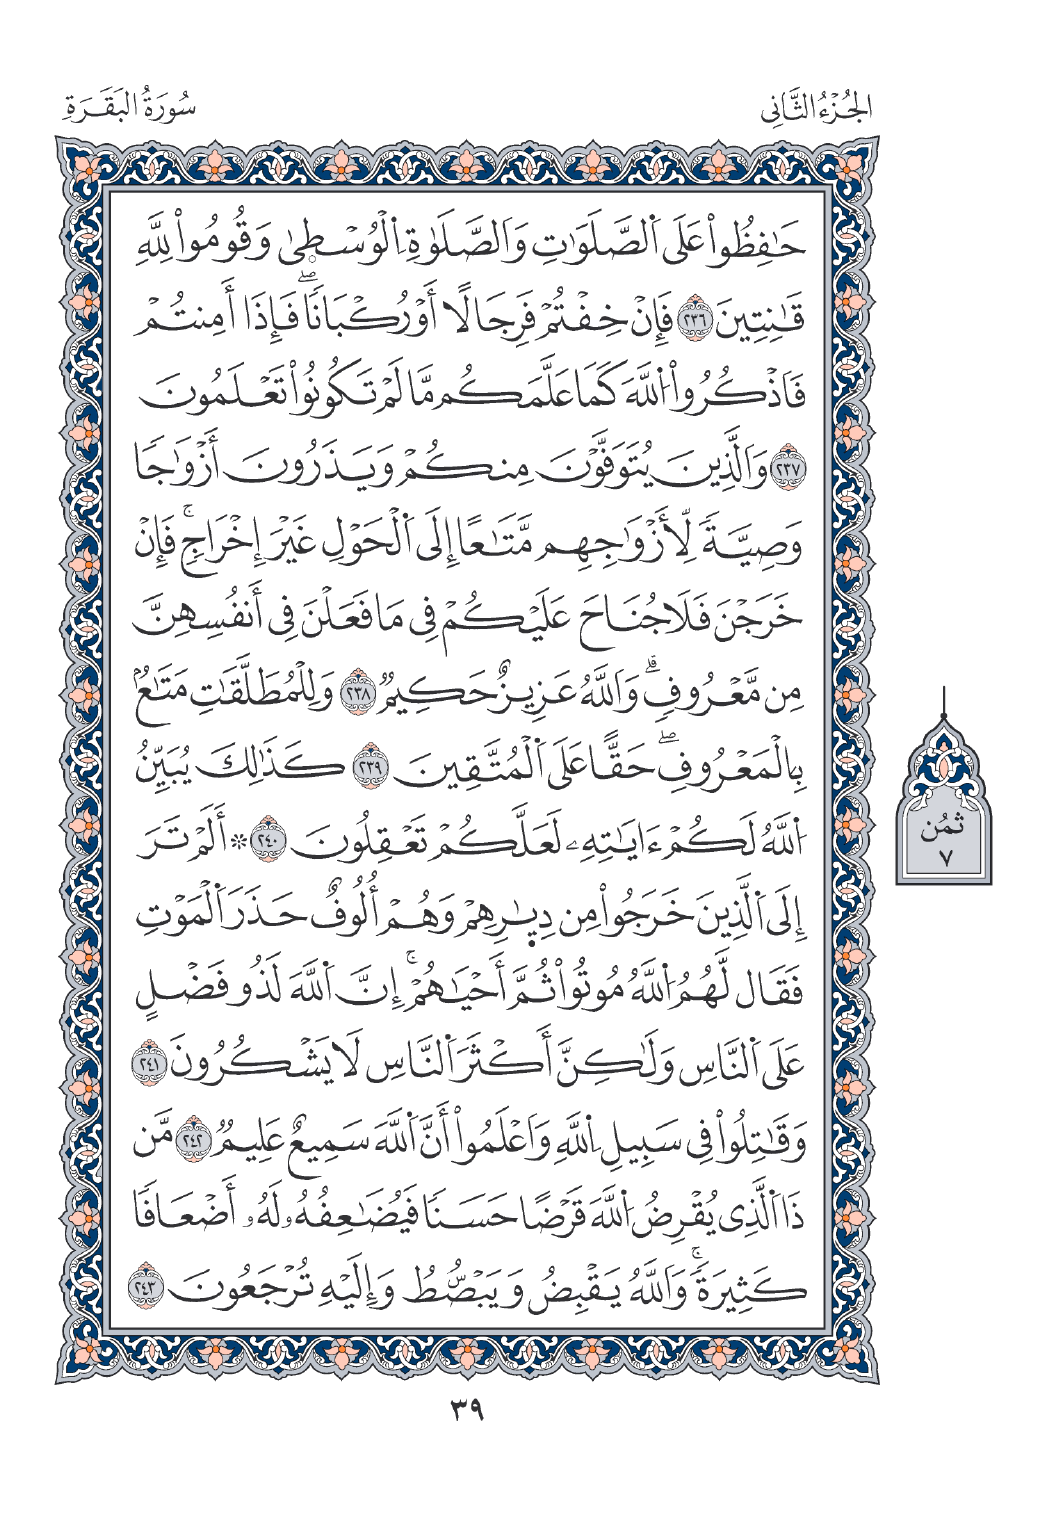 الجُزْءُ الثَّانِي
سُورَةُ البَقَرَةِ
حَٰفِظُواْ عَلَى اَ۬لصَّلَوَٰتِ وَالصَّلَوٰةِ اِ۬لْوُسْط۪يٰ وَقُومُواْ لِلهِ
قَٰنِتِينَ ٢٣٦ فَإِنْ خِفْتُمْ فَرِجَالًا أَوْ رُكْبَانٗاۖ فَإِذَا أَمِنتُمْ
فَاذْكُرُواْ اُ۬للَّهَ كَمَا عَلَّمَكُم مَّا لَمْ تَكُونُواْ تَعْلَمُونَ
٢٣٧ وَالَّذِينَ يُتَوَفَّوْنَ مِنكُمْ وَيَذَرُونَ أَزْوَٰجٗا
وَصِيَّةٗ لِّأَزْوَٰجِهِم مَّتَٰعًا إِلَى اَ۬لْحَوْلِ غَيْرَ إِخْرَاجٖۚ فَإِنْ
خَرَجْنَ فَلَا جُنَاحَ عَلَيْكُمْ فِي مَا فَعَلْنَ فِي أَنفُسِهِنَّ
مِن مَّعْرُوفٖۗ وَاللَّهُ عَزِيزٌ حَكِيمٞ ٢٣٨ وَلِلْمُطَلَّقَٰتِ مَتَٰعُۢ
بِالْمَعْرُوفِۖ حَقًّا عَلَى اَ۬لْمُتَّقِينَ ٢٣٩ كَذَٰلِكَ يُبَيِّنُ
اُ۬للَّهُ لَكُمْ ءَايَٰتِهِۦ لَعَلَّكُمْ تَعْقِلُونَ ٢٤٠ ۞ أَلَمْ تَرَ
إِلَى اَ۬لَّذِينَ خَرَجُواْ مِن دِيٰ۪رِهِمْ وَهُمْ أُلُوفٌ حَذَرَ اَ۬لْمَوْتِ
فَقَال لَّهُمُ اُ۬للَّهُ مُوتُواْ ثُمَّ أَحْيَٰهُمْۚ إِنَّ اَ۬للَّهَ لَذُو فَضْلٍ
عَلَى اَ۬لنَّاسِ وَلَٰكِنَّ أَكْثَرَ اَ۬لنَّاسِ لَا يَشْكُرُونَ ٢٤١
وَقَٰتِلُواْ فِي سَبِيلِ اِ۬للَّهِ وَاَعْلَمُواْ أَنَّ اَ۬للَّهَ سَمِيعٌ عَلِيمٞ ٢٤٢ مَّن
ذَا اَ۬لَّذِي يُقْرِضُ اُ۬للَّهَ قَرْضًا حَسَنٗا فَيُضَٰعِفُهُۥ لَهُۥ أَضْعَافٗا
كَثِيرَةٗۚ وَاللَّهُ يَقْبِضُ وَيَبْصُۜطُ وَإِلَيْهِ تُرْجَعُونَ ٢٤٣
ثمُن
٧
٣٩